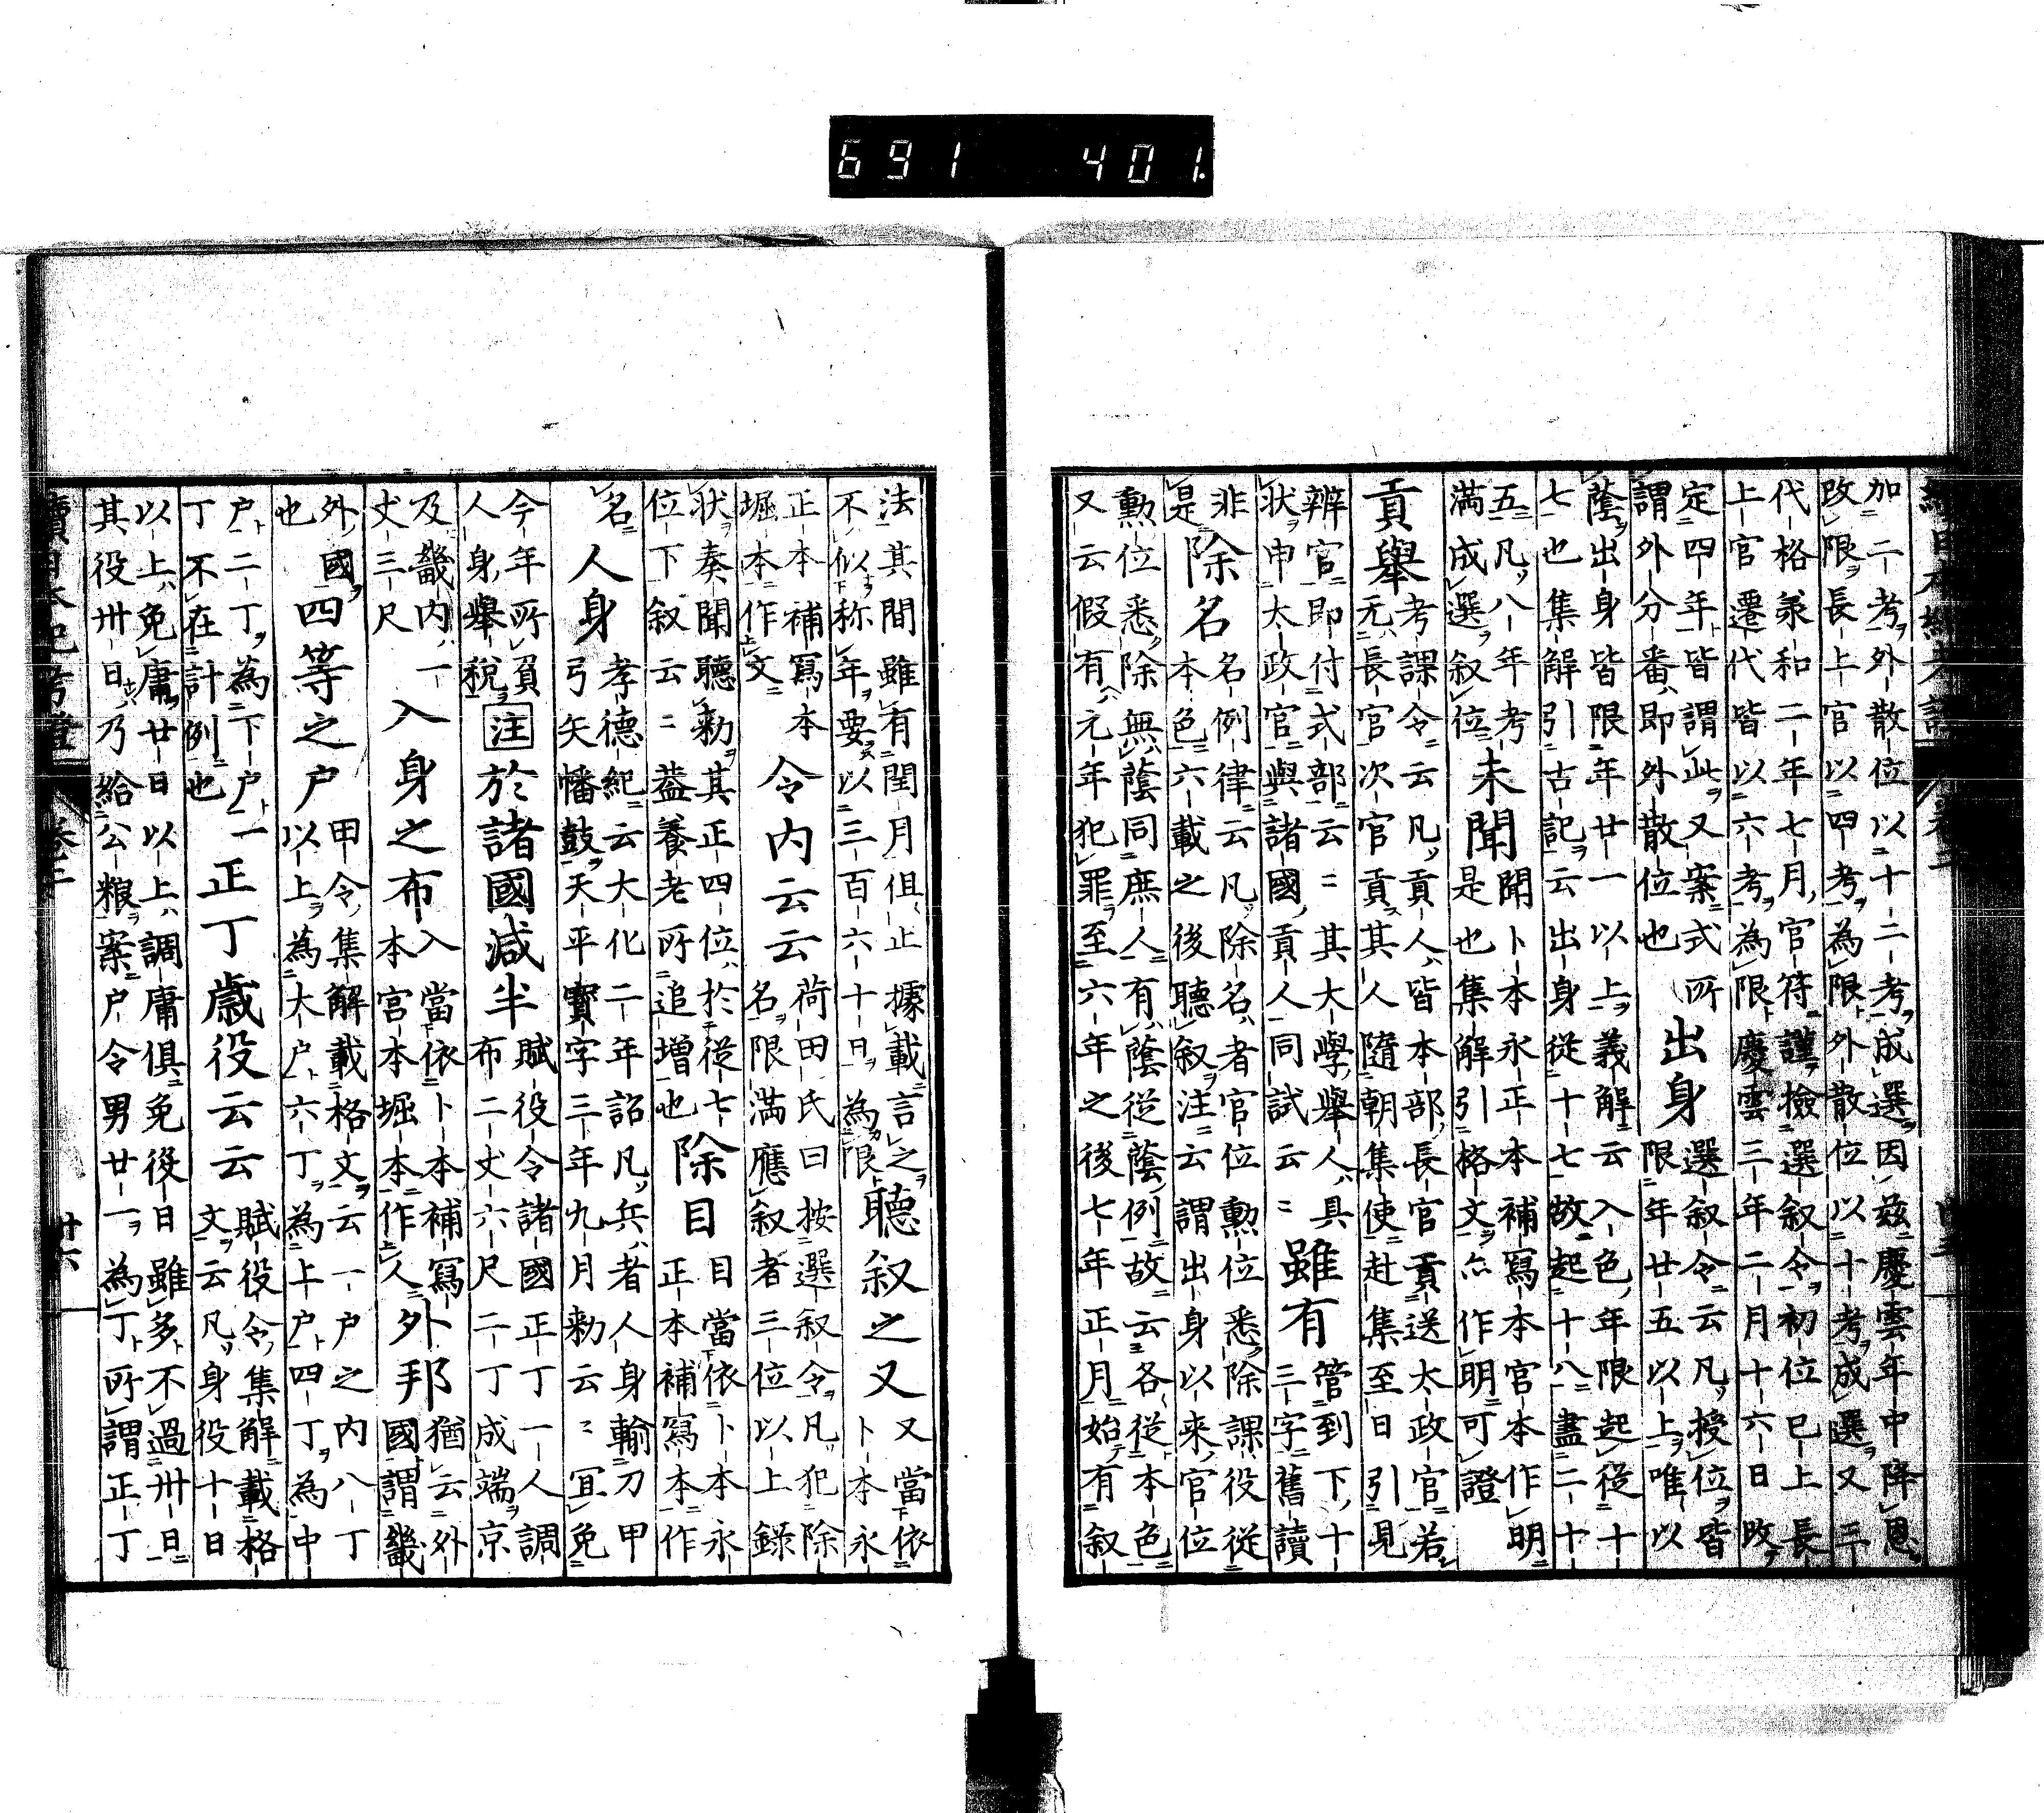 691 401.
加二考外散位以十二考成選因茲慶雲年中降恩
改限長上官以四考為限外散位以十考成選又三
代格承和二年七月官符謹撿選叙令初位已上長
上官遷代皆以六考為限慶雲三年二月十六日改
定四年皆謂此又案式所
謂外分番即外散位也
出身
選叙令云凡授位皆
限年廿五以上唯以
蔭出身皆限年廿一以上義解云入色年限起從十
七也集解引古記云出身從十七故起十八盡二十
五凡八年考
満成選叙位
未聞
聞卜本永正本補寫本宮本作明
是也集解引格文亦作明可證
貢舉
考課令云凡貢人皆本部長官貢送太政官若
无長官次官貢其人隨朝集使赴集至日引見
辨官即付式部云〻其大學舉人具
状申太政官與諸國貢人同試云〻
雖有
管到下十
三字舊讀
非
是
除名
名例律云凡除名者官位勳位悉除課役從
本色六載之後聽叙注云謂出身以来官位
勲位悉除無蔭同庶人有蔭從蔭例故云各從本色
又云假有元年犯罪至六年之後七年正月始有叙
法其間雖有閏月但止據載言之
不似称年要以三百六十日為限
聴叙之又
又當依
卜本永
正本補寫本
堀本作文
令内云云
荷田氏曰按選叙令凡犯除
名限満應叙者三位以上録
状奏聞聴勅其正四位於從七
位下叙云〻蓋養老所追増也
除目
目當依卜本永
正本補寫本作
名
人身
孝德紀云大化二年詔凡兵者人身輸刀甲
弓矢幡鼓天平寶字三年九月勅云〻宜免
今年所負
人身舉税
注
於諸國減半
賦役令諸國正丁一人調
布二丈六尺二丁成端京
及畿内一
丈三尺
入身之布
入當依卜本補寫
本宮本堀本作人
外邦
猶云外
國謂畿
外國
也
四等之户
甲令集解載格文云一户之内八丁
以上為大户六丁為上户四丁為中
户二丁為下户一
丁不在計例也
正丁歳役云云
賦役令集解載格
文云凡身役十日
以上免庸廿日以上調庸俱免役日雖多不過卅日
其役卅日乃給公粮案户令男廿一為丁所謂正丁